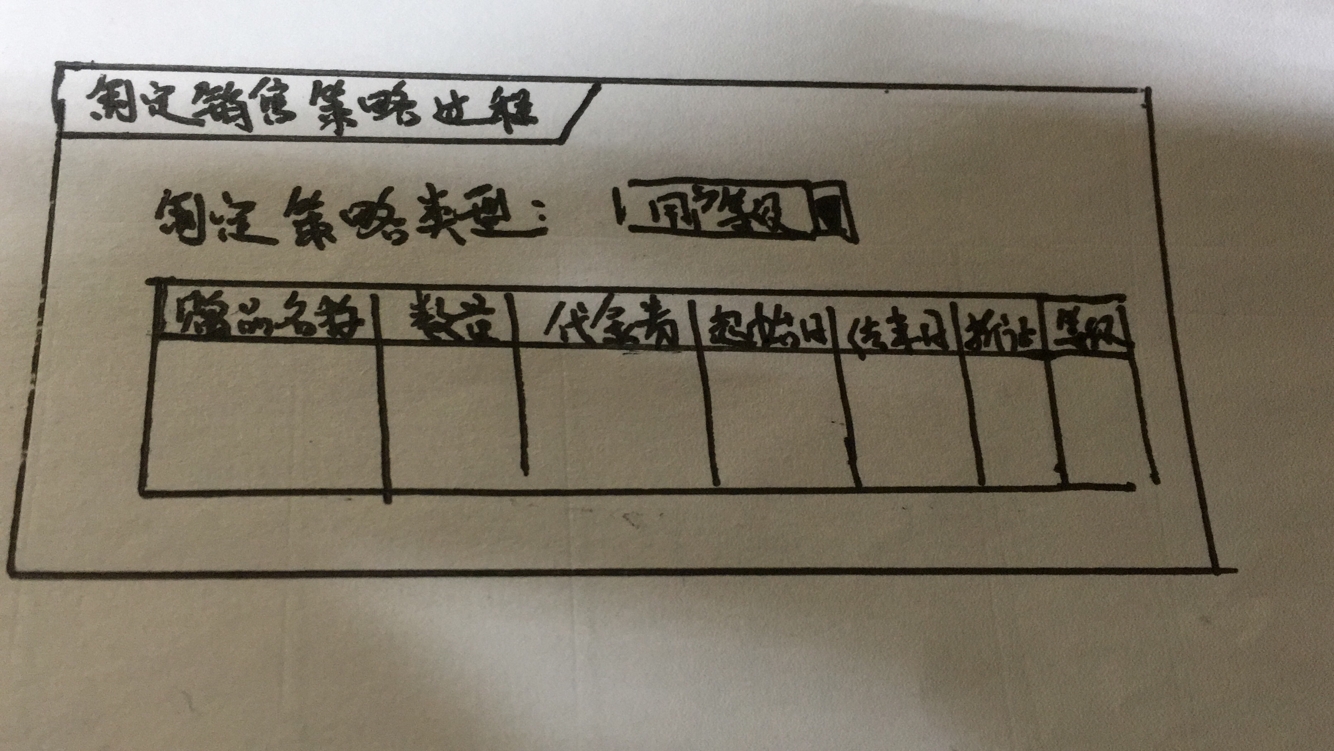 制定销售策略过程
制定策略类型: 用户等级
赠品名称 数量 代金券 起始日 结束日 折让 等级